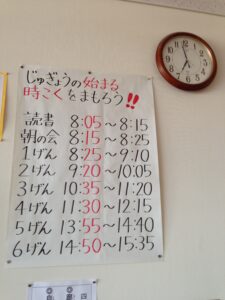 じゅぎょうの始まる
時こくをまもろう!!
読書 8:05～8:15
朝の会 8:15～8:25
1げん 8:25～9:10
2げん 9:20～10:05
3げん 10:35～11:20
4げん 11:30～12:15
5げん 13:55～14:40
6げん 14:50～15:35